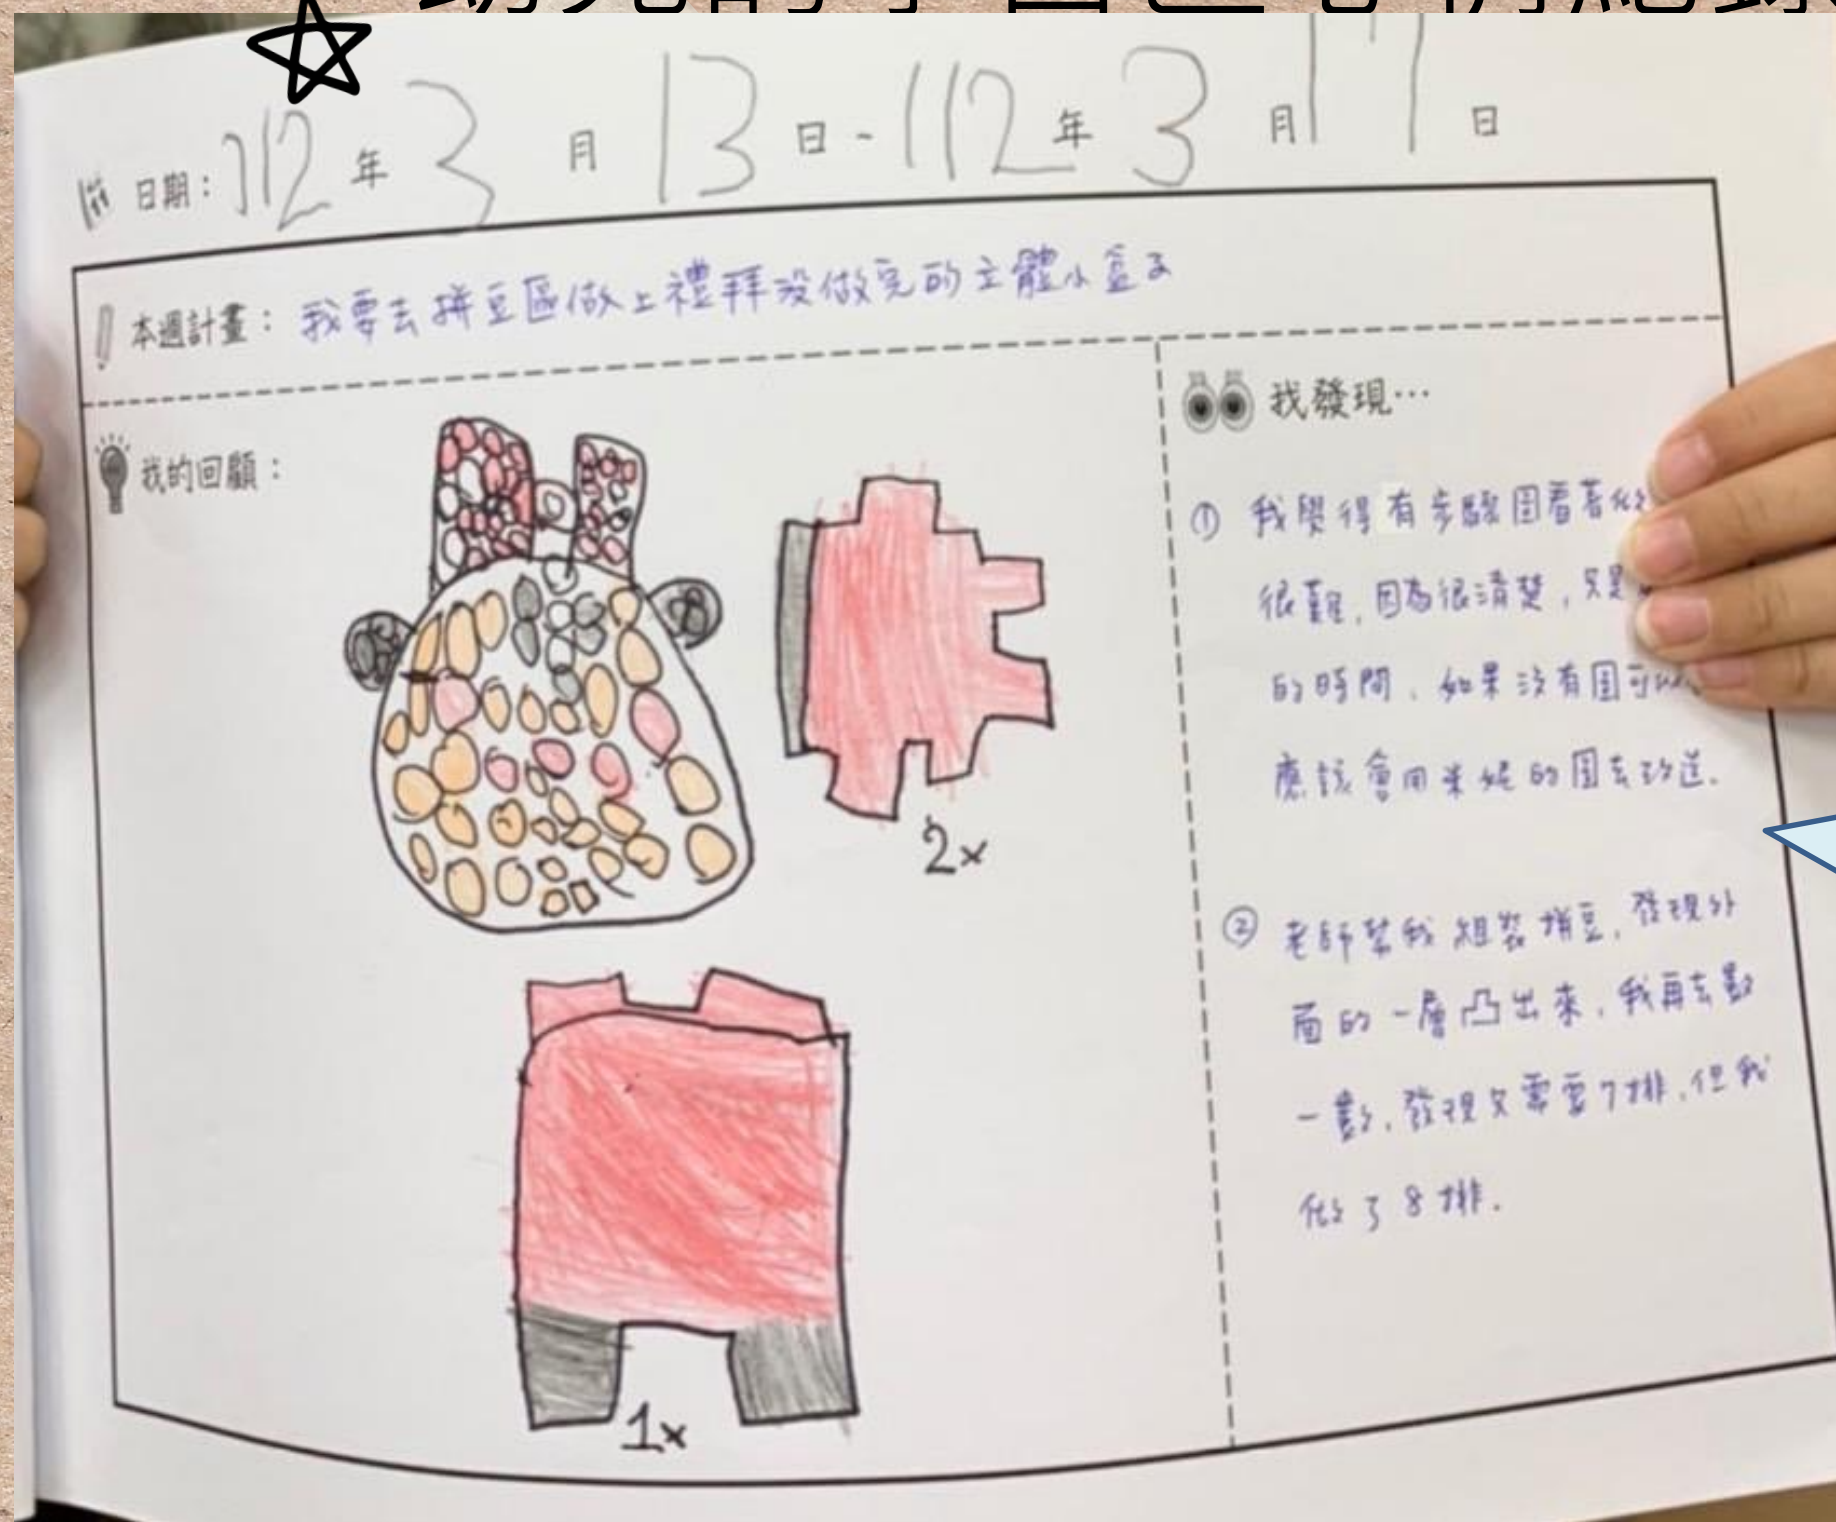 日期：112年3月13日-112年3月17日
本週計畫：我要去拼豆區做上禮拜沒做完的立體小盒子
我的回顧：
我發現…
① 我覺得有步驟圖看著做
很難，因為很清楚，只是
的時間，如果沒有圖可以
應該會用米妮的圖去改造.
② 老師幫我組裝拼豆，發現外
面的一層凸出來，我再去數
一數，發現只需要7排，但我
做了8排.
2x
1x